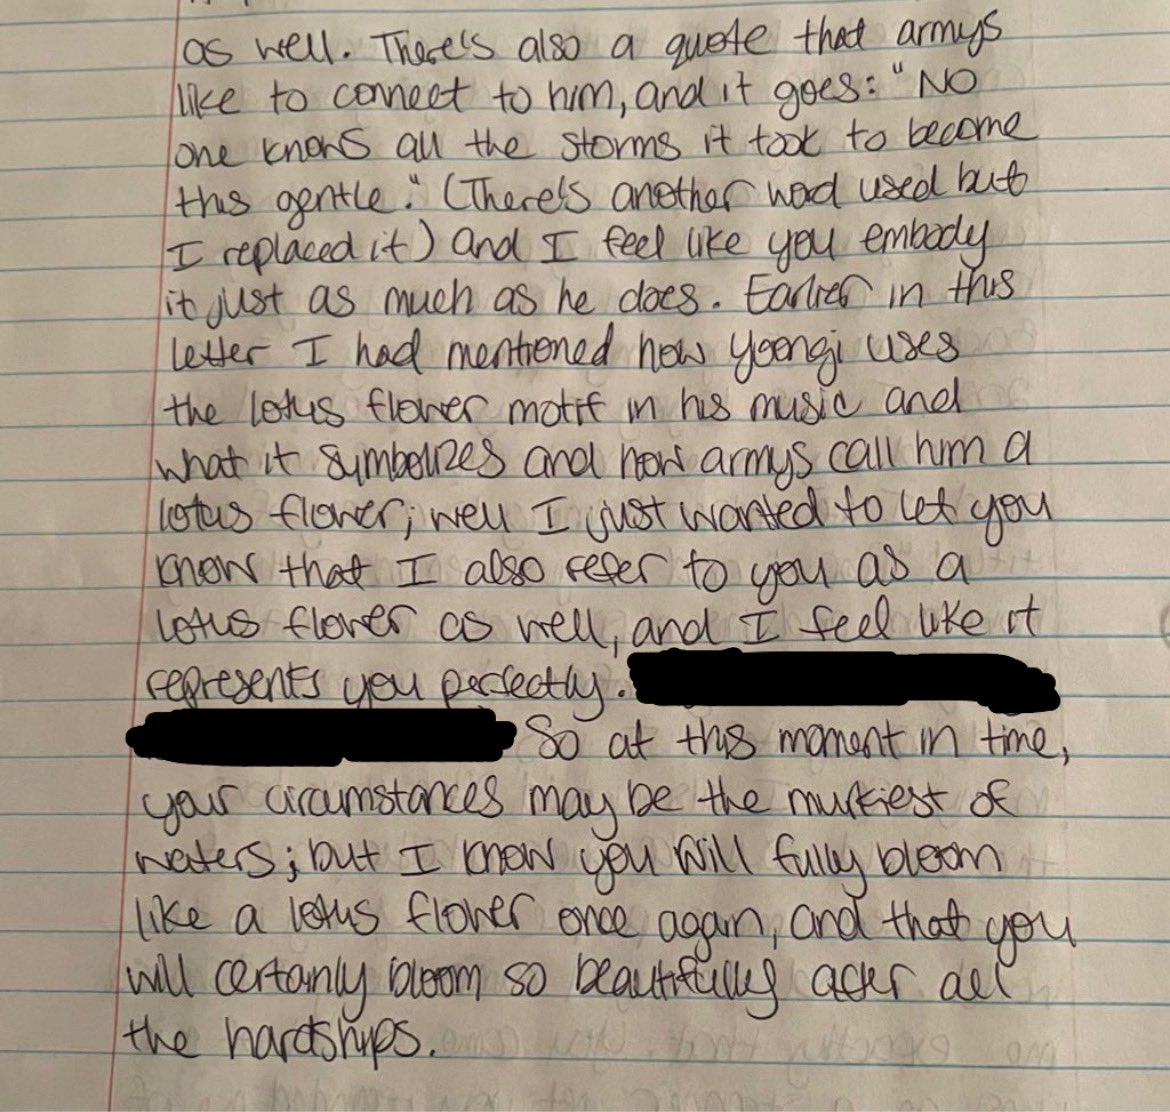 as well. There's also a quote that armys
like to connect to him, and it goes: "No
one knows all the storms it took to become
this gentle." (There's another word used but
I replaced it) and I feel like you embody
it just as much as he does. Earlier in this
letter I had mentioned how yoongi uses
the lotus flower motif in his music and
what it symbolizes and how armys call him a
lotus flower; well I just wanted to let you
know that I also refer to you as a
lotus flower as well, and I feel like it
represents you perfectly.
So at this moment in time,
your circumstances may be the murkiest of
waters; but I know you will fully bloom
like a lotus flower once again, and that you
will certainly bloom so beautifully after all
the hardships.